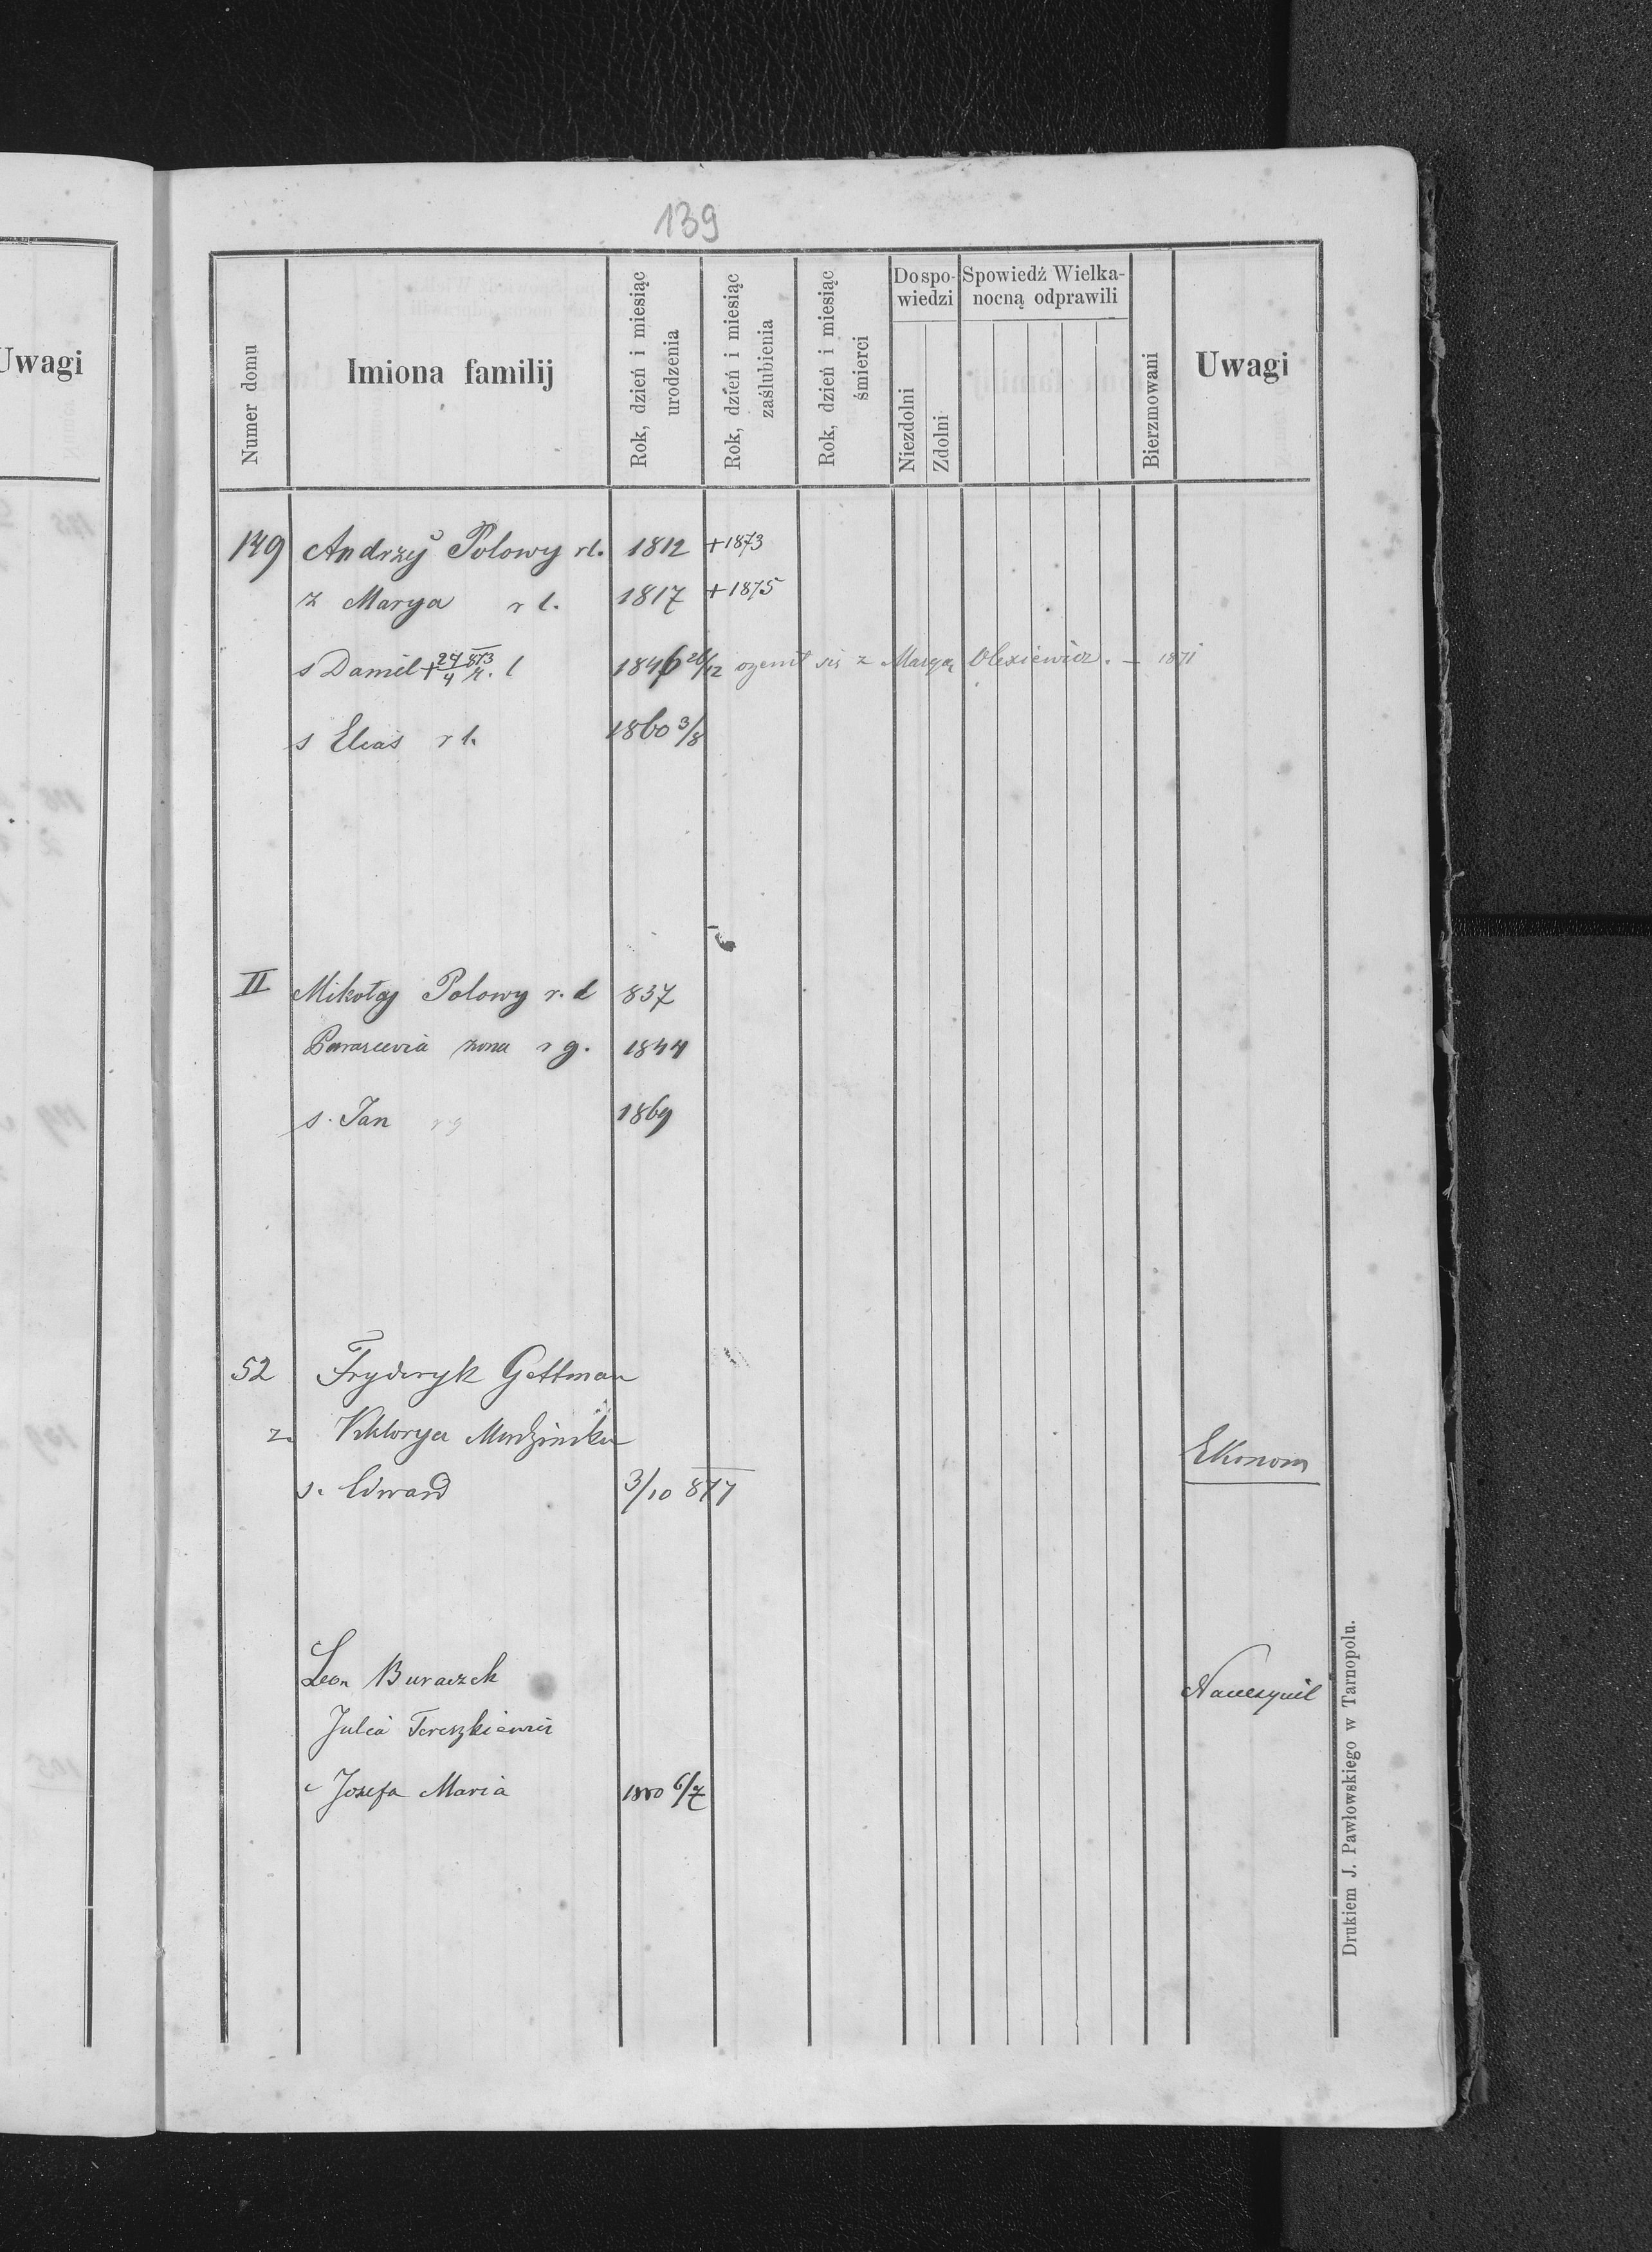 139
Uwagi
Numer domu
Imiona familij
Rok, dzień i miesiąc urodzenia
Rok, dzień i miesiąc zaślubienia
Rok, dzień i miesiąc śmierci
Do spowiedzi
Niezdolni
Zdolni
Spowiedź Wielkanocną odprawili
Bierzmowani
Uwagi
139 Andrzy Polowy rl. 1812 +1873
z Marya rl. 1817 +1875
s Daniel + 24/4 873 r. l 1846 26/12 ożenił się z Maryą Olexiewicz. – 1871
s Elias rl. 1860 3/8
II Mikołaj Polowy r. l 837
Parascevia żona r g. 1844
s. Jan r g 1869
52 Fryderyk Gettman
z. Viktorya
Ekonom
s. Edward 3/10 877
Leon Buraczek Nauczyciel
Julia Tereszkiewicz
c Josefa Maria 1880 6/7
Drukiem J. Pawłowskiego w Tarnopolu.